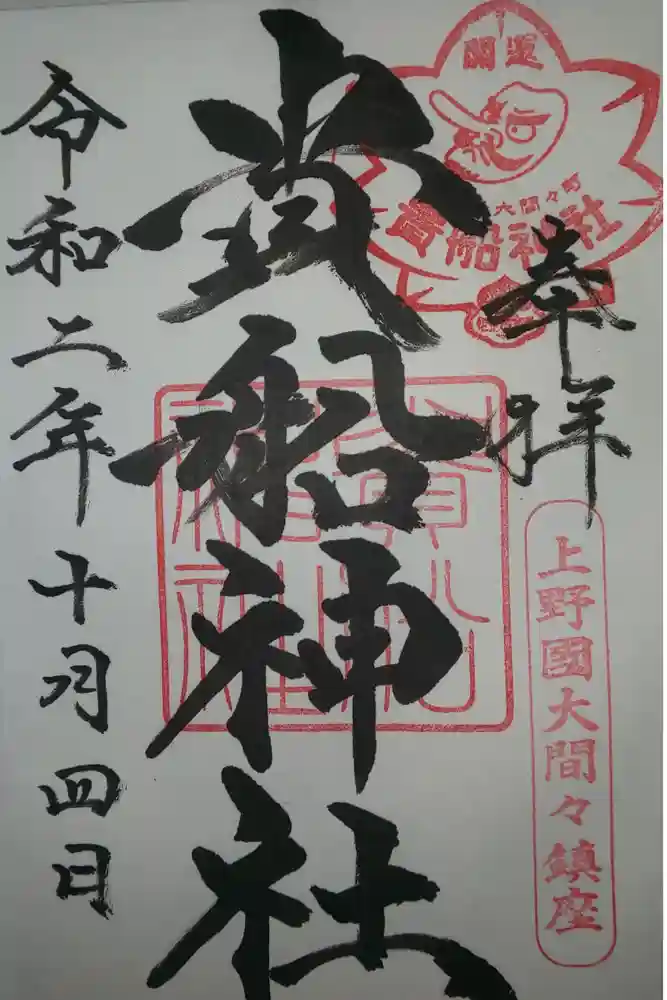 奉拝
開運
大間々町
貴船神社
上野國大間々鎮座
貴船神社
令和二年十月四日